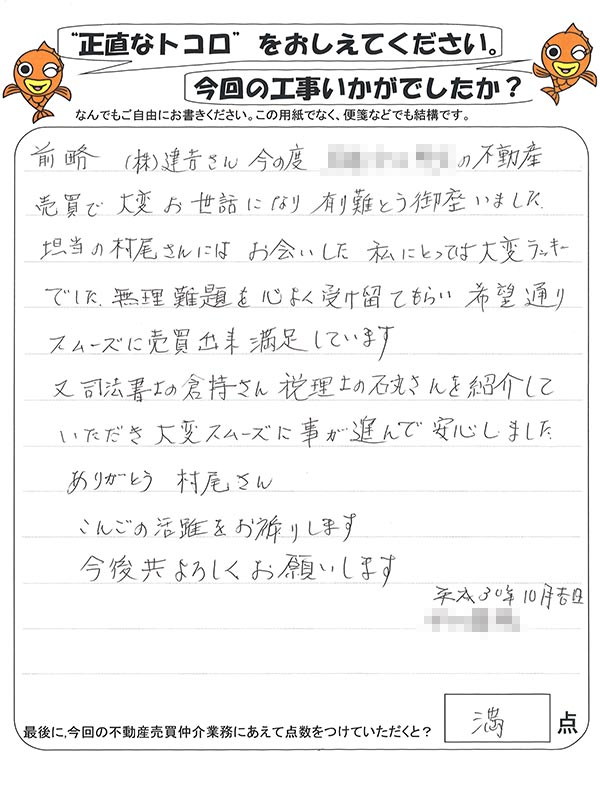 "正直なトコロ"をおしえてください。
今回の工事いかがでしたか？
なんでもご自由にお書きください。この用紙でなく、便箋などでも結構です。
前略 (株)建吉さん 今の度 の不動産
売買で 大変 お世話になり 有り難とう御座いました
担当の村尾さんには お会いした 私にとっては大変ラッキー
でした 無理難題を心よく受け留てもらい 希望通り
スムーズに売買出来 満足しています
又 司法書士の倉持さん 税理士の石丸さんを紹介して
いただき 大変スムーズに事が進んで 安心しました
ありがとう 村尾さん
こんごの活躍をお祈りします
今後共よろしくお願いします
平成30年10月吉日
最後に、今回の不動産売買仲介業務にあえて点数をつけていただくと？ 満 点